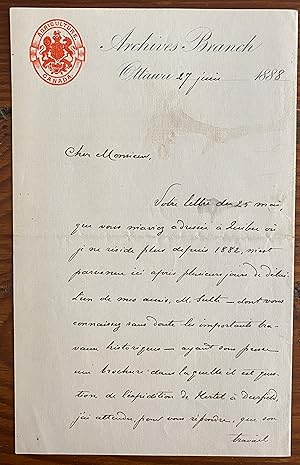 AGRICULTURE
CANADA
Archives Branch
Ottawa 27 juin 1888
Cher Monsieur,
Votre lettre du 25 mai,
que vous m'aviez adressée à Québec où
je ne réside plus depuis 1882, m'est
parvenue ici après plusieurs jours de délai.
L'un de mes amis, M. Sulte – dont vous
connaissez sans doute les importants tra-
vaux historiques – ayant sous presse
une brochure dans laquelle il est ques-
tion de l'expédition de Hertel à Deerfield,
j'ai attendu, pour vous répondre, que son
travail